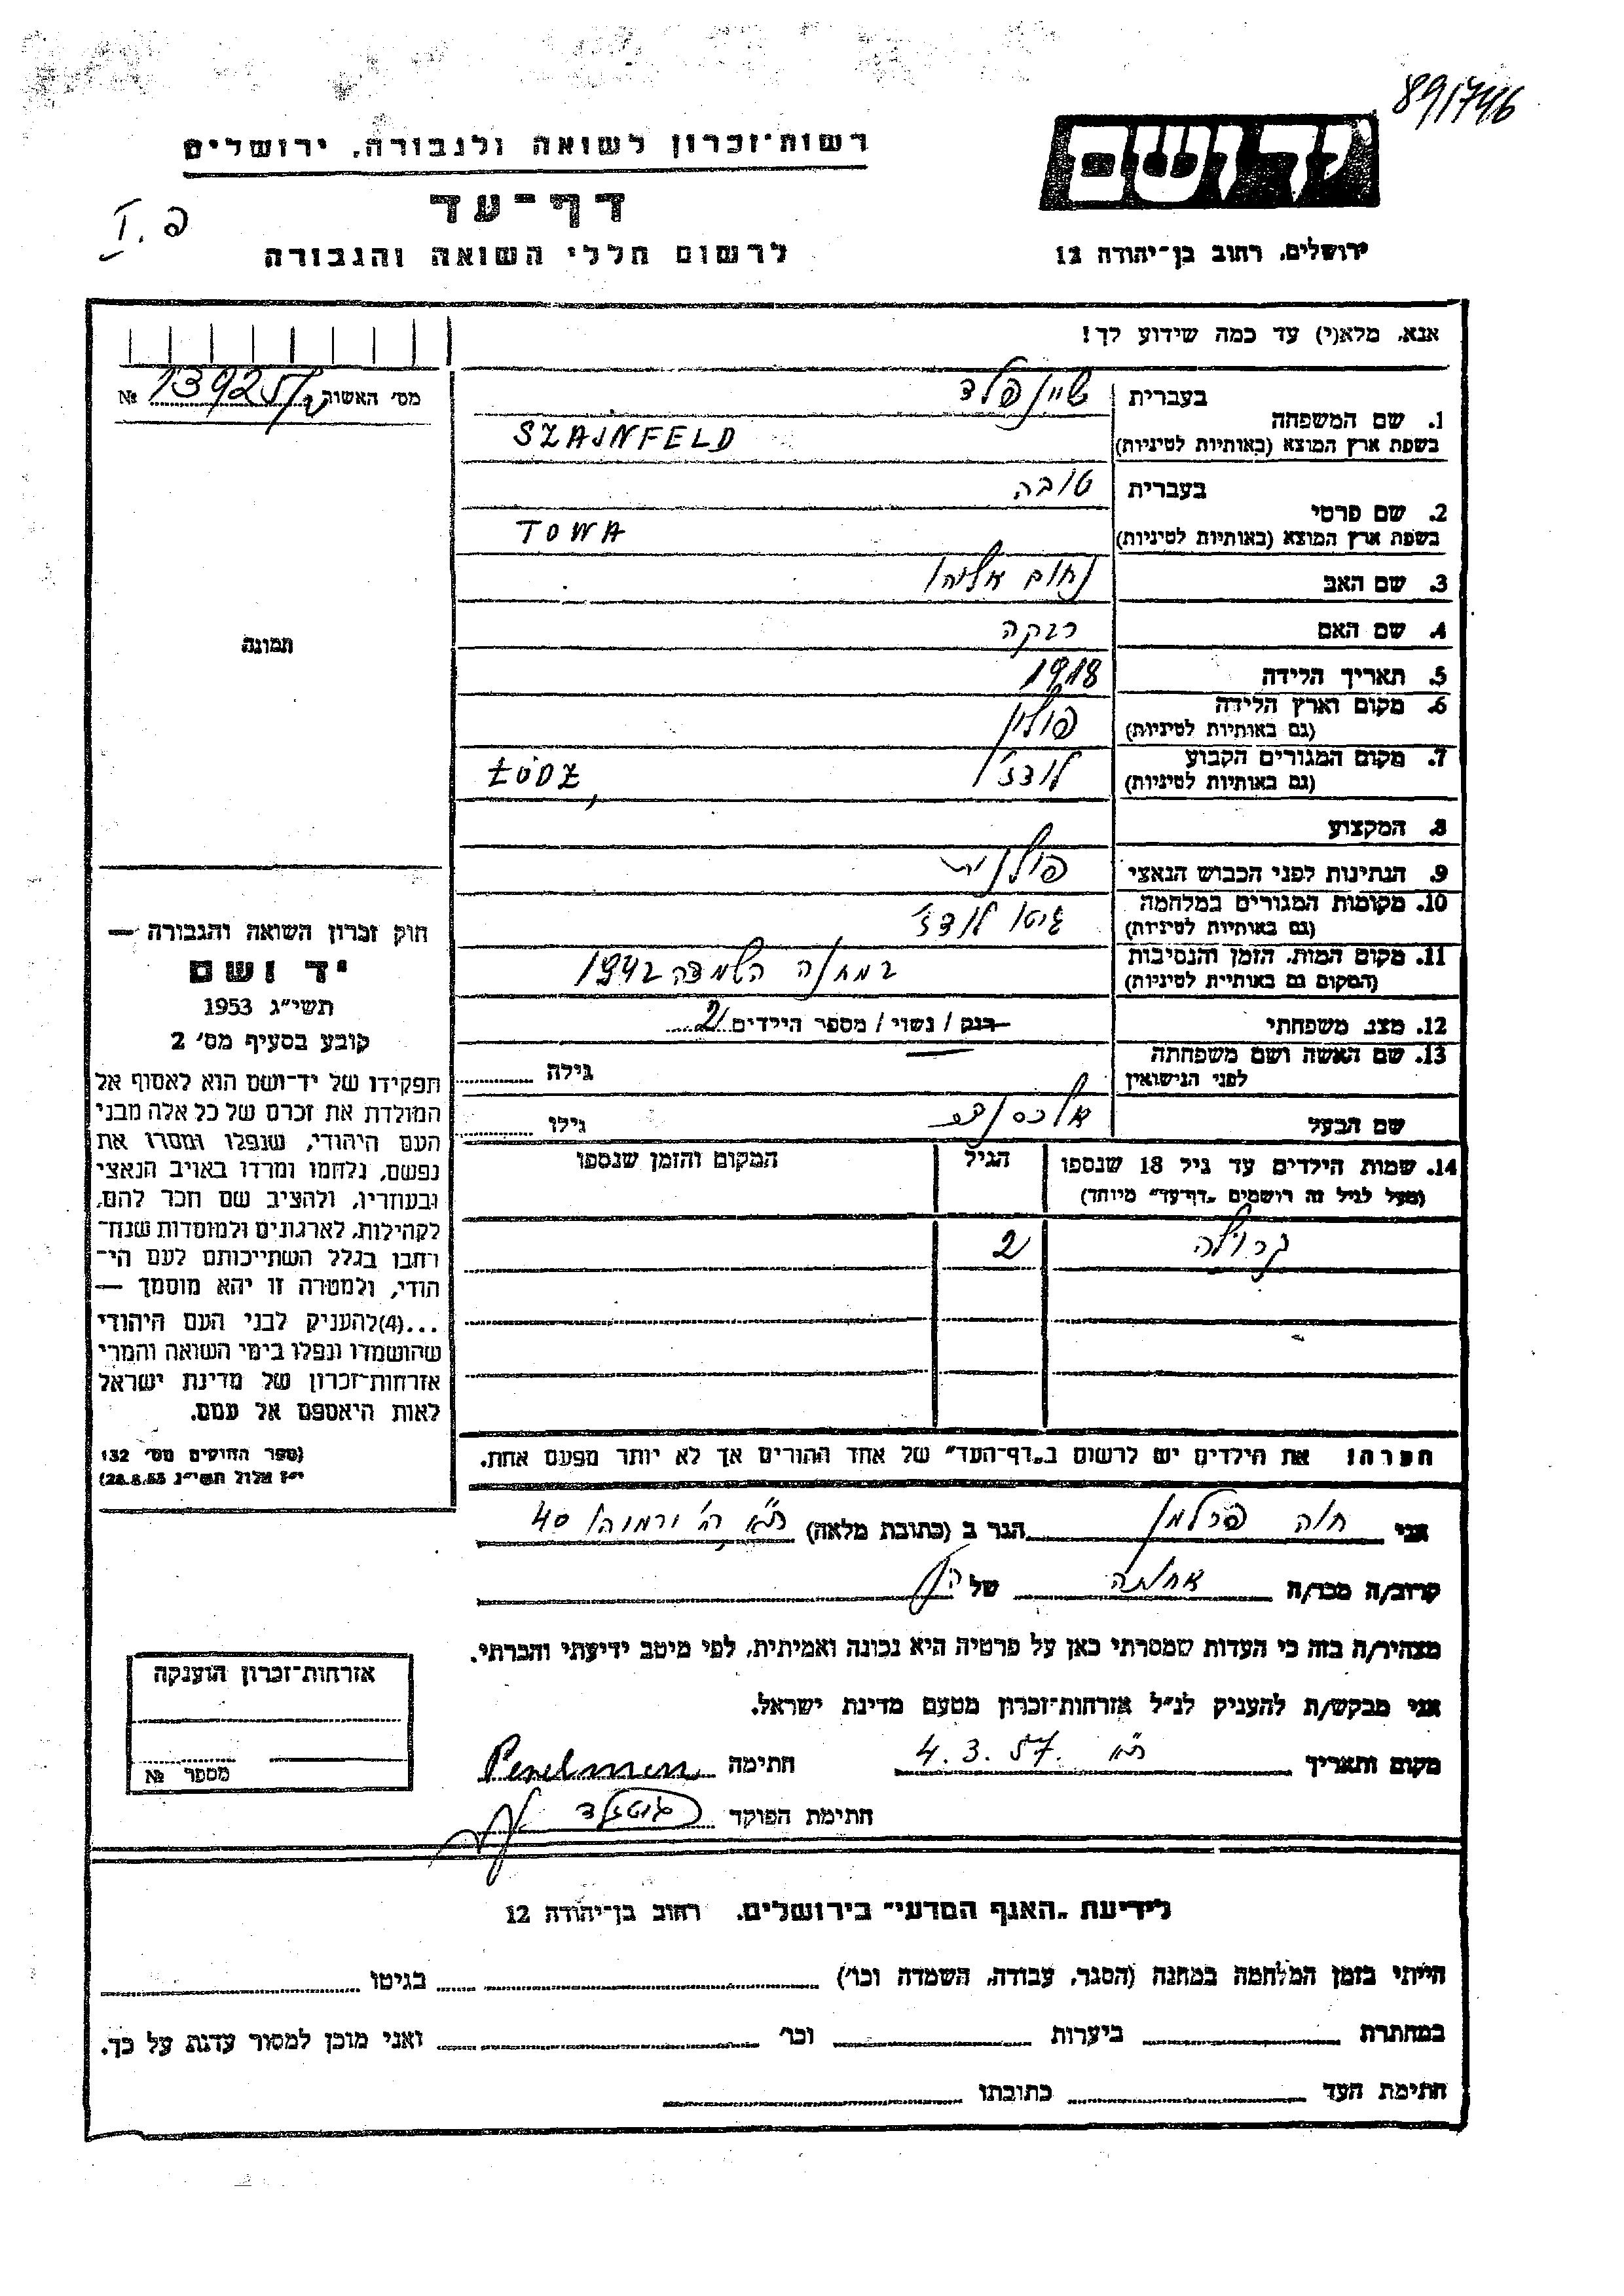 89/746
רשות־זכרון לשואה ולגבורה, ירושלים
יד ושם
דף־עד
פ. I
לרשום חללי השואה והגבורה
ירושלים, רחוב בן־יהודה 12
אנא, מלא(י) עד כמה שידוע לך!
מס׳ האשור 139251/ №
1. שם המשפחה בעברית שיינפלד
בשפת ארץ המוצא (באותיות לטיניות) SZAJNFELD
2. שם פרטי בעברית טובה
בשפת ארץ המוצא (באותיות לטיניות) TOWA
3. שם האב נחום אליהו
4. שם האם רבקה
5. תאריך הלידה 1918
6. מקום וארץ הלידה פולין
(גם באותיות לטיניות)
7. מקום המגורים הקבוע לודז׳ ŁÓDZ,
(גם באותיות לטיניות)
8. המקצוע
9. הנתינות לפני הכבוש הנאצי פולנית
10. מקומות המגורים במלחמה גיטו לודז׳
(גם באותיות לטיניות)
11. מקום המות, הזמן והנסיבות במחנה השמדה 1942
(המקום גם באותיות לטיניות)
12. מצב משפחתי רווק / נשוי / מספר הילדים 2
13. שם האשה ושם משפחתה גילה
לפני הנישואין
שם הבעל אלכסנדר גילו
14. שמות הילדים עד גיל 18 שנספו הגיל המקום והזמן שנספו
(מעל לגיל זה רושמים „דף־עד״ מיוחד)
2
תמונה
חוק זכרון השואה והגבורה —
יד ושם
תשי״ג 1953
קובע בסעיף מס׳ 2
תפקידו של יד־ושם הוא לאסוף אל
המולדת את זכרם של כל אלה מבני
העם היהודי, שנפלו ומסרו את
נפשם, נלחמו ומרדו באויב הנאצי
ובעוזריו, ולהציב שם וזכר להם,
לקהילות, לארגונים ולמוסדות שנח־
רבו בגלל השתייכותם לעם הי־
הודי, ולמטרה זו יהא מוסמך —
...(4)להעניק לבני העם היהודי
שהושמדו ונפלו בימי השואה והמרי
אזרחות־זכרון של מדינת ישראל
לאות היאספם אל עמם.
(ספר החוקים מס׳ 132
י״ז אלול תשי״ג 28.8.53)
הערה! את הילדים יש לרשום ב„דף־העד״ של אחד ההורים אך לא יותר מפעם אחת.
אני חוה פרלמן הגר ב (כתובת מלאה) ת״א 40
קרוב/ה מכר/ה אחותה של הנ״ל
מצהיר/ה בזה כי העדות שמסרתי כאן על פרטיה היא נכונה ואמיתית, לפי מיטב ידיעתי והכרתי.
אני מבקש/ת להעניק לנ״ל אזרחות־זכרון מטעם מדינת ישראל.
מקום ותאריך ת״א 4.3.57. חתימה Perelman
חתימת הפוקד
אזרחות־זכרון הוענקה
מספר №
לידיעת „האגף המדעי״ בירושלים, רחוב בן־יהודה 12
הייתי בזמן המלחמה במחנה (הסגר, עבודה, השמדה וכו׳) בגיטו
במחתרת ביערות וכו׳ ואני מוכן למסור עדות על כך.
חתימת העד כתובתו